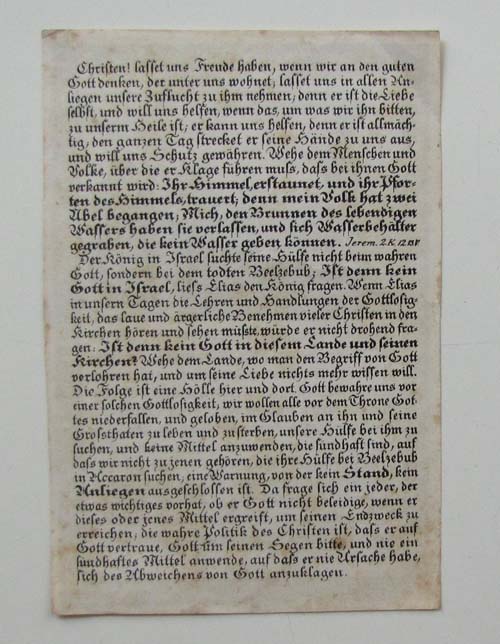 Christen! lasset uns Freude haben, wenn wir an den guten
Gott denken, der unter uns wohnet; lasset uns in allen An-
liegen unsere Zuflucht zu ihm nehmen; denn er ist die Liebe
selbst, und will uns helfen, wenn das, um was wir ihn bitten,
zu unserm Heile ist; er kann uns helfen, denn er ist allmäch-
tig, den ganzen Tag strecket er seine Hände zu uns aus,
und will uns Schutz gewähren. Wehe dem Menschen und
Volke, über die er Klage führen muss, dass bei ihnen Gott
verkannt wird: Ihr Himmel, erstaunet, und ihr Pfor-
ten des Himmels, trauert; denn mein Volk hat zwei
Übel begangen; Mich, den Brunnen des lebendigen
Wassers haben sie verlassen, und sich Wasserbehälter
gegraben, die kein Wasser geben können. Jerem. 2 K. 12.13 V
Der König in Israel suchte seine Hülfe nicht beim wahren
Gott, sondern bei dem todten Beelzebub; Ist denn kein
Gott in Israel, liess Elias den König fragen. Wenn Elias
in unsern Tagen die Lehren und Handlungen der Gottlosig-
keit, das laue und ärgerliche Benehmen vieler Christen in den
Kirchen hören und sehen müsste, würde er nicht drohend fra-
gen: Ist denn kein Gott in diesem Lande und seinen
Kirchen? Wehe dem Lande, wo man den Begriff von Gott
verlohren hat, und um seine Liebe nichts mehr wissen will.
Die Folge ist eine Hölle hier und dort. Gott bewahre uns vor
einer solchen Gottlosigkeit, wir wollen alle vor dem Throne Got-
tes niederfallen, und geloben, im Glauben an ihn und seine
Grossthaten zu leben und zu sterben, unsere Hülfe bei ihm zu
suchen, und keine Mittel anzuwenden, die sündhaft sind, auf
dass wir nicht zu jenen gehören, die ihre Hülfe bei Beelzebub
in Accaron suchen, eine Warnung, von der kein Stand, kein
Anliegen ausgeschlossen ist. Da frage sich ein jeder, der
etwas wichtiges vorhat, ob er Gott nicht beleidige, wenn er
dieses oder jenes Mittel ergreift, um seinen Endzweck zu
erreichen; die wahre Politik des Christen ist, dass er auf
Gott vertraue, Gott um seinen Segen bitte, und nie ein
sündhaftes Mittel anwende, auf dass er nie Ursache habe,
sich des Abweichens von Gott anzuklagen.